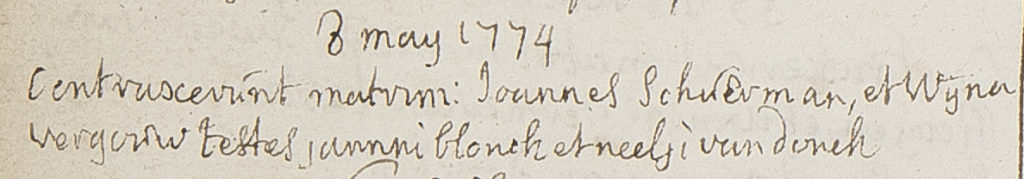 8 may 1774
Contraxerunt matrim: Joannes Schuerman, et Wijna
vergouw testes, jannni blonck et neelsi van donck